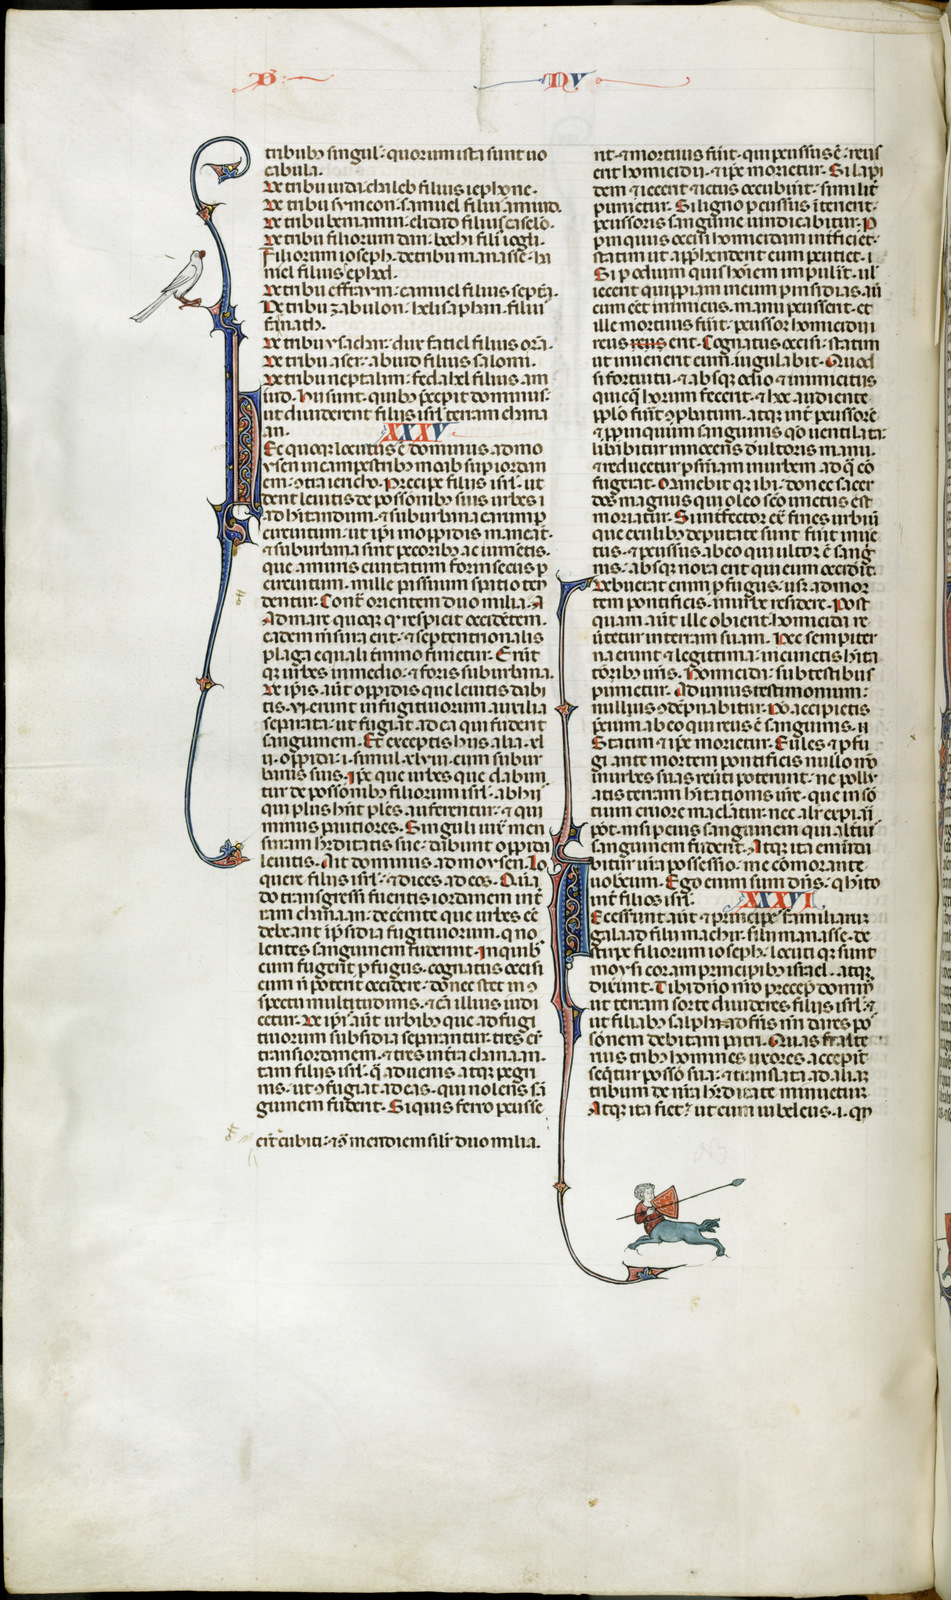 B NV
tribubus singul' quorum ista sunt uo
cabula.
De tribu iuda chaleb filius iephone.
De tribu symeon samuel filius amiud.
De tribu beniamin elidad filius caselo.
De tribu filiorum dan bochi filius iogli.
Filiorum ioseph de tribu manasse hi
niel filius ephod.
De tribu effraym camuel filius septan.
De tribu zabulon helisaphan filius
farnath.
De tribu ysachar dux fatiel filius ozan.
De tribu aser abiud filius salomi.
De tribu neptalim fedahel filius am
iud. Hii sunt quibus precepit dominus
ut diuiderent filiis isrl' terram chana
an. XXXV
Hec quoque locutus est dominus ad moy
ysen in campestribus moab super iordan
em contra iericho. Precipe filiis isrl' ut
dent leuitis de possessionibus suis urbes
ad habitandum et suburbana earum per
circuitum ut ipsi in oppidis maneant
et suburbana sint pecoribus ac iumentis
que a muris ciuitatum forinsecus per
circuitum mille passuum spatio ten
dentur. Contra orientem duo milia
ad mare quoque quod respicit occidentem
eadem mensura erit et septentrionalis
plaga equali termino finietur. Erunt
que urbes in medio et foris suburbana.
De ipsis autem oppidis que leuitis dabi
tis vi erunt in fugitiuorum auxilia
separata ut fugiat ad ea qui fuderit
sanguinem. Et exceptis hiis alia xl
ii oppida i simul xlviii cum subur
banis suis. Ipse que urbes que dabun
tur de possessionibus filiorum isrl' ab hiis
qui plus habent plures auferentur et qui
minus pauciores. Singuli iuxta men
suram hereditatis sue dabunt oppida
leuitis. Ait dominus ad moysen. Lo
quere filiis isrl' et dices ad eos. Quan
do transgressi fueritis iordanem in ter
ram chanaan decernite que urbes esse
debeant in presidia fugitiuorum qui no
lentes sanguinem fuderint. In quibus
cum fugerit profugus cognatus occisi
eum non poterit occidere donec stet in con
spectu multitudinis et causa illius iudi
cetur. De ipsis autem urbibus que ad fugi
tiuorum subsidia separantur tres erunt
trans iordanem et tres in terra chanaan
tam filiis isrl' quam aduenis atque peregri
nis ut confugiat ad eas qui nolens san
guinem fuderit. Si quis ferro percusse
erunt cubiti et contra meridiem similiter duo milia.
rit et mortuus fuerit qui percussus est reus
erit homicidii et ipse morietur. Si lapi
dem iecerit et ictus occubuerit similiter
punietur. Si ligno percussus interierit
percussoris sanguine uindicabitur. Pro
pinquus occisi homicidam interficiet
statim ut apprehenderit eum percutiet.
Si per odium quis hominem impulerit uel
iecerit quippiam in eum per insidias aut
cum esset inimicus manu percusserit et
ille mortuus fuerit percussor homicidii
reus reus erit. Cognatus occisi statim
ut inuenerit eum iugulabit. Quod
si fortuitu et absque odio et inimicitiis
quicquam horum fecerit et hoc audiente
populo fuerit comprobatum atque inter percussorem
et propinquum sanguinis questio uentilata
liberabitur innocens de ultoris manu
et reducetur per sententiam in urbem ad quam con
fugerat. Manebit que ibi donec sacer
dos magnus qui oleo sancto unctus est
moriatur. Si interfector extra fines urbium
que exulibus deputate sunt fuerit inuen
tus et percussus ab eo qui ultor est sangui
nis absque noxa erit qui eum occiderit.
Debuerat enim profugus usque ad mor
tem pontificis in urbe residere. Post
quam autem ille obierit homicida re
uertetur in terram suam. Hec sempiter
na erunt et legitima in cunctis habita
tionibus uestris. Homicida sub testibus
punietur. Ad unius testimonium
nullus condempnabitur. Non accipietis
precium ab eo qui reus est sanguinis
Statim et ipse morietur. Exules et profu
gi ante mortem pontificis nullo modo
in urbes suas reuerti poterunt ne pollu
atis terram habitationis uestre que in son
tium cruore maculatur nec aliter expiari
potest nisi per eius sanguinem qui alterius
sanguinem fuderit. Atque ita emunda
bitur uestra possessio me commorante
uobiscum. Ego enim sum dominus qui habito
inter filios isrl'. XXXVI
Accesserunt autem et principes familiarum
galaad filii machir filii manasse de
stirpe filiorum ioseph locuti que sunt
moysi coram principibus israel atque
dixerunt. Tibi domino nostro precepit dominus
ut terram sorte diuideres filiis isrl' et
ut filiabus salphaad fratris nostri dares pos
sessionem debitam patri. Quas si alte
rius tribus homines uxores acceperint
sequetur possessio sua et translata ad aliam
tribum de nostra hereditate minuetur
Atque ita fiet ut cum iubeleus i qu